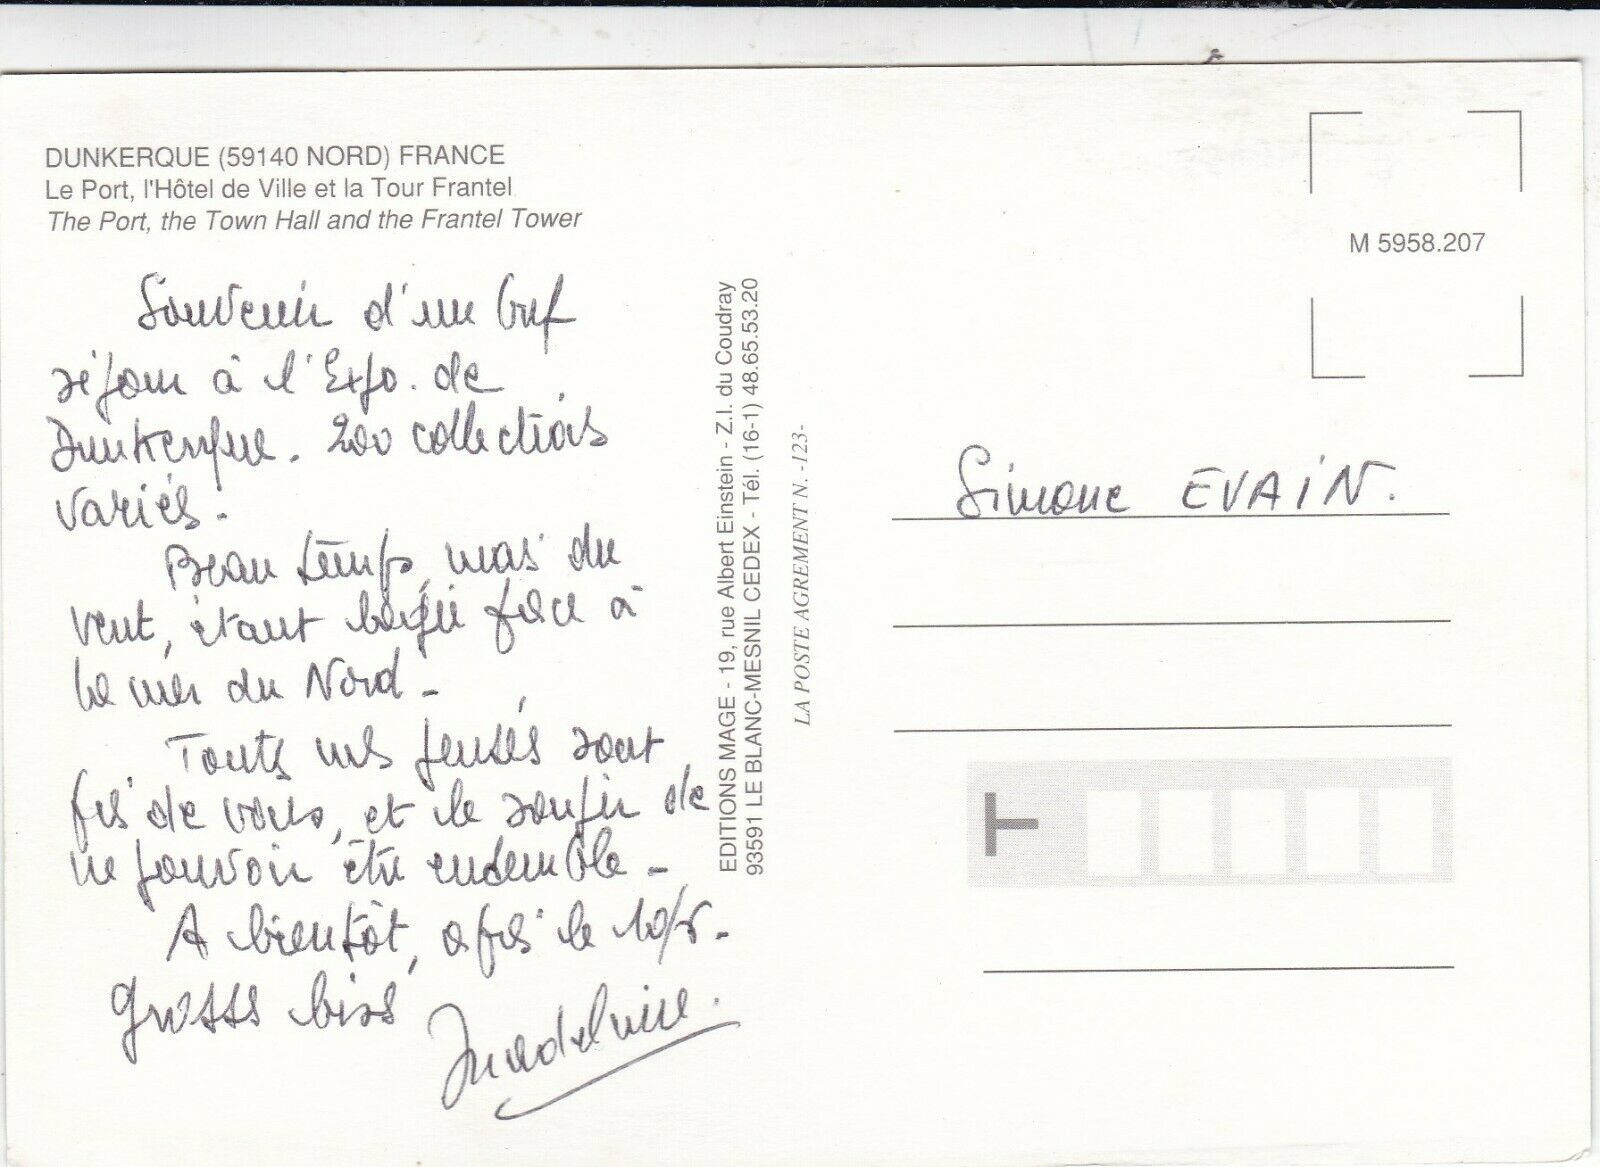 DUNKERQUE (59140 NORD) FRANCE
Le Port, l'Hôtel de Ville et la Tour Frantel
The Port, the Town Hall and the Frantel Tower
Souvenir d'un bref
séjour à l'Expo. de
Dunkerque. 200 collections
variés.
Beau temps, mais du
vent, étant logée face à
la mer du Nord -
Toutes mes pensées sont
près de vous, et le soupir de
ne pouvoir être ensemble -
A bientôt, après le 10/5 -
Grosses bises
Madeleine.
EDITIONS MAGE - 19, rue Albert Einstein - Z.I. du Coudray
93591 LE BLANC-MESNIL CEDEX - Tél. (16-1) 48.65.53.20
LA POSTE AGREMENT N. -123-
M 5958.207
Simone EVAIN.